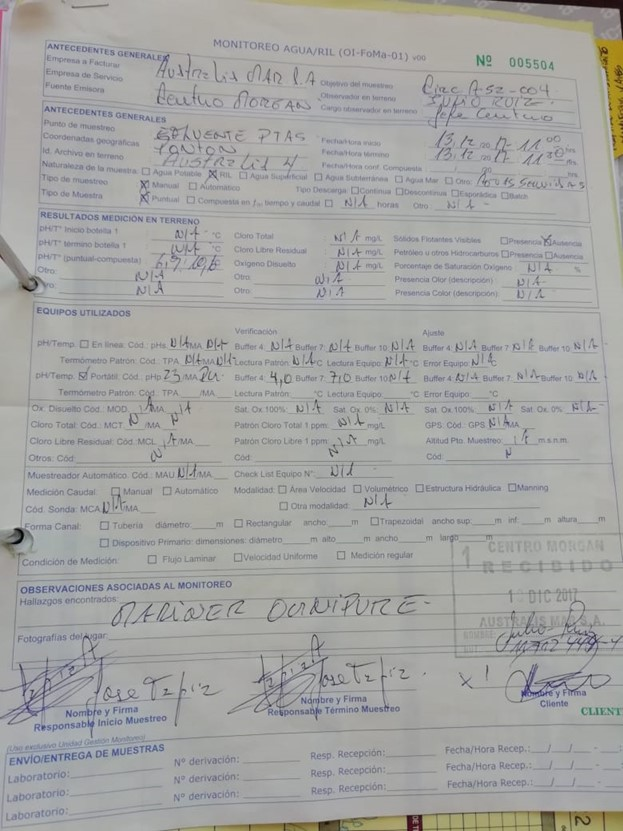 MONITOREO AGUA/RIL (OI-FoMa-01) v00
Nº 005504
ANTECEDENTES GENERALES
Empresa a Facturar Australis MAR S.A
Empresa de Servicio Objetivo del muestreo Circ A-52-004
Fuente Emisora Centro MORGAN Observador en terreno Julio Ruiz
Cargo observador en terreno: Jefe Centro
ANTECEDENTES GENERALES
Punto de muestreo EFLUENTE PTAS Fecha/Hora inicio 13/12/2017-11:00 hrs.
Coordenadas geográficas PONTON Fecha/Hora término 13/12/2017-11:30 hrs.
Id. Archivo en terreno Australis 4 Fecha/Hora conf. Compuesta
Naturaleza de la muestra: Agua Potable RIL Agua Superficial Agua Subterránea Agua Mar Otro: AGUAS SERVIDAS
Tipo de muestreo Manual Automático Tipo Descarga: Continua Descontinua Esporádica Batch
Tipo de Muestra Puntual Compuesta en f. tiempo y caudal N/A horas Otro: N/A
RESULTADOS MEDICIÓN EN TERRENO
pH/Tº Inicio botella 1 N/A ºC Cloro Total N/A mg/L Sólidos Flotantes Visibles Presencia Ausencia
pH/Tº término botella 1 N/A ºC Cloro Libre Residual N/A mg/L Petróleo u otros Hidrocarburos Presencia Ausencia
pH/Tº (puntual-compuesta) Oxigeno Disuelto N/A mg/L Porcentaje de Saturación Oxígeno N/A %
Otro: N/A Otro: N/A Presencia Olor (descripción) N/A
Otro: N/A Otro: N/A Presencia Color (descripción) N/A
EQUIPOS UTILIZADOS
Verificación Ajuste
pH/Temp. En línea: Cód.: pHs N/A/MA N/A Buffer 4: N/A Buffer 7: N/A Buffer 10: N/A Buffer 4: N/A Buffer 7: N/A Buffer 10: N/A
Termómetro Patrón: Cód.: TPA N/A/MA N/A Lectura Patrón: N/A ºC Lectura Equipo: N/A ºC Error Equipo: N/A ºC
pH/Temp. Portátil: Cód.: pHp 23/MA Buffer 4: 4,0 Buffer 7: 7,0 Buffer 10: N/A Buffer 4: N/A Buffer 7: N/A Buffer 10: N/A
Termómetro Patrón: Cód.: TPA /MA Lectura Patrón: ºC Lectura Equipo: ºC Error Equipo: ºC
Ox. Disuelto Cód.: MOD /MA N/A Sat. Ox.100%: N/A Sat. Ox. 0%: N/A Sat. Ox.100% N/A Sat. Ox. 0% N/A
Cloro Total: Cód.: MCT /MA Patrón Cloro Total 1 ppm: N/A mg/L GPS: Cód.: GPS N/A/MA
Cloro Libre Residual: Cód.: MCL /MA Patrón Cloro Libre 1 ppm: N/A mg/L Altitud Pto. Muestreo: m.s.n.m.
Otros: Cód: Cód: Cód:
Muestreador Automático: Cód.: MAU N/A/MA Check List Equipo Nº: N/A
Medición Caudal: Manual Automático Modalidad: Área Velocidad Volumétrico Estructura Hidráulica Manning
Cód. Sonda: MCA N/A/MA Otra modalidad: N/A
Forma Canal: Tubería diámetro: m Rectangular ancho m Trapezoidal ancho sup. m inf. m altura m
Dispositivo Primario: dimensiones: diámetro m alto m ancho m largo m
Condición de Medición: Flujo Laminar Velocidad Uniforme Medición regular
1 CENTRO MORGAN
RECIBIDO
DIC 2017
AUSTRALIS MAR S.A.
NOMBRE: Julio Ruiz
OBSERVACIONES ASOCIADAS AL MONITOREO
Hallazgos encontrados: MARINER OMNIPURE-
Fotografías del lugar:
Jose Tapia Jose Tapia. X!
Nombre y Firma Nombre y Firma Nombre y Firma
Responsable Inicio Muestreo Responsable Término Muestreo Cliente
CLIENT
(Uso exclusivo Unidad Gestión Monitoreo)
ENVÍO/ENTREGA DE MUESTRAS
Laboratorio: Nº derivación: Resp. Recepción: Fecha/Hora Recep.:
Laboratorio: Nº derivación: Resp. Recepción: Fecha/Hora Recep.:
Laboratorio: Nº derivación: Resp. Recepción: Fecha/Hora Recep.: